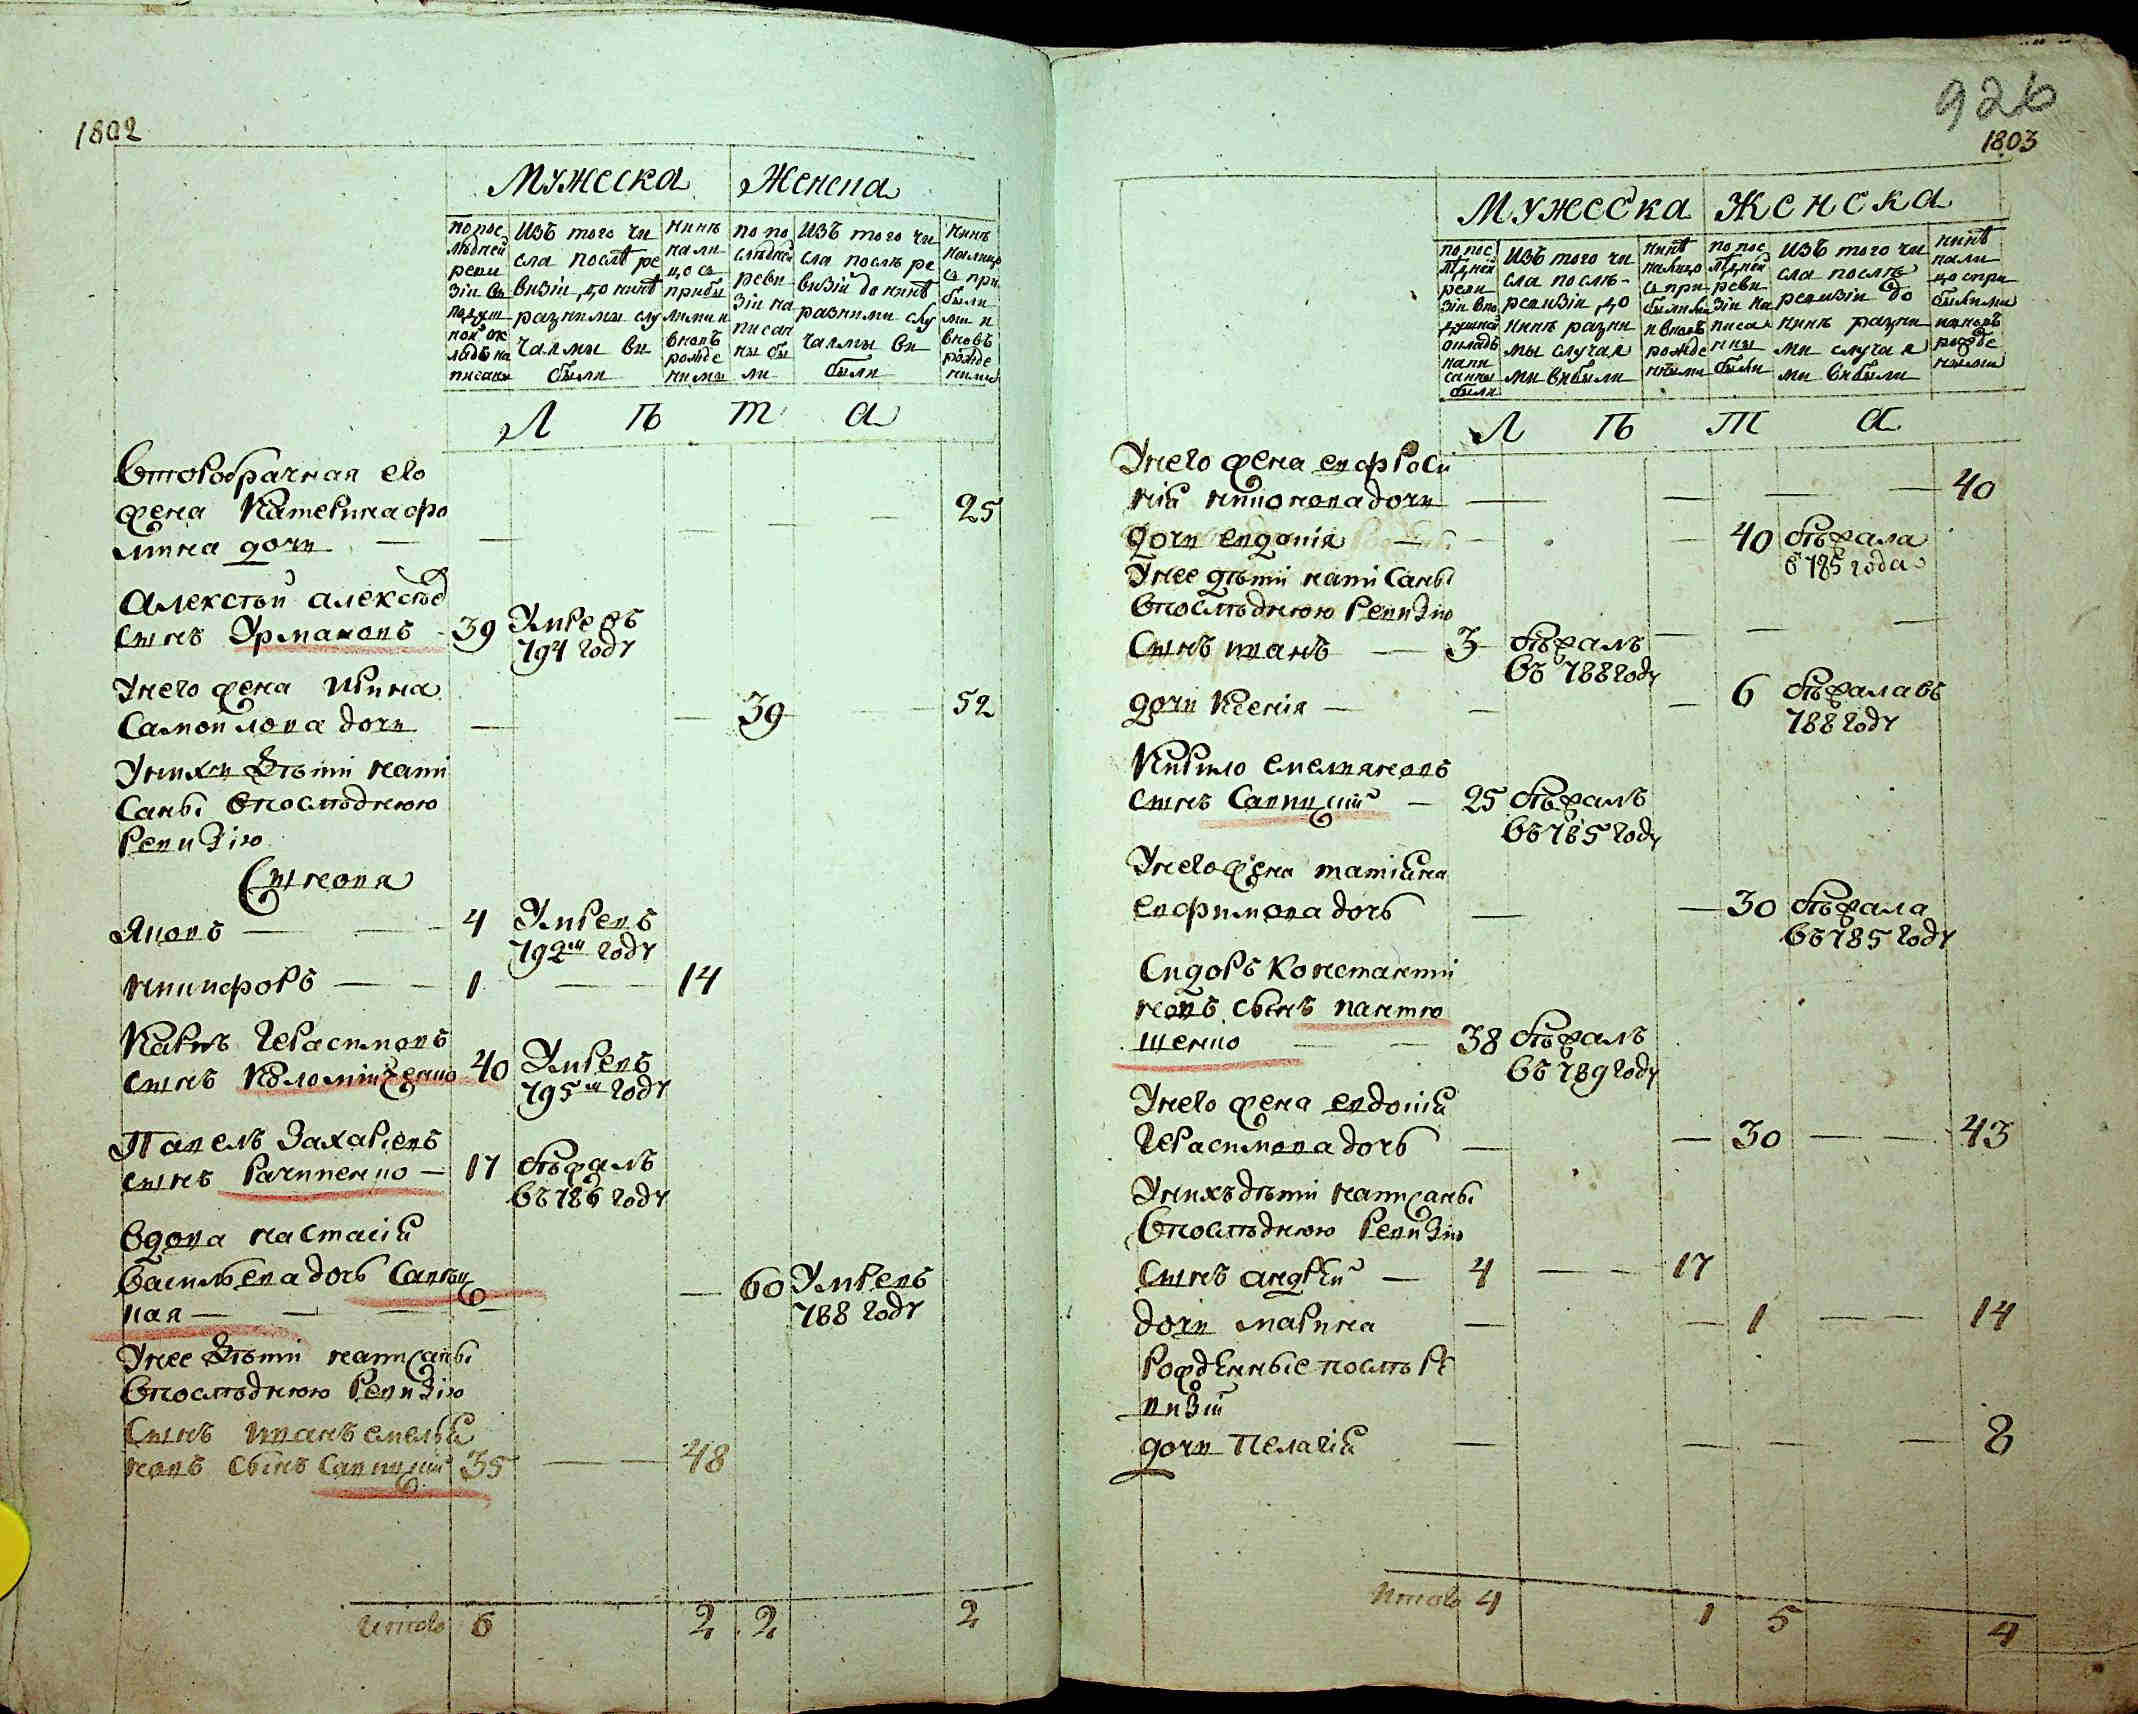 1802
Мужеска Женска
по пос
лѣдней
реви
зіи въ
подуш
ной ок
ладъ на
писаны
Изъ того чи
сла послѣ ре
визіи до нинѣ
разними слу
чаями ви
были
нинѣ
нали
цо съ
прибы
лими и
вновъ
рожде
ними
по по
слѣдней
реви
зіи на
писан
ны бы
ли
Изъ того чи
сла послѣ ре
визіи до нинѣ
разними слу
чаями ви
были
нинѣ
налицо
съ при
были
ми и
вновъ
рожде
ними
Л ѣ т а
Второбрачная его
жена Катерина фо
мина дочь — — — — — 25
Алексѣй алексѣев
сынъ Урмановъ 39 Умревъ
794 году
У него жена Ирина
Самойлова дочь — — 39 — — 52
У нихъ дѣти напи
саны впослѣднюю
Ревизію
Сыновя
Яковъ — — — 4 Умревъ
792м году
никифоръ — — 1 — — 14
Карпъ Герасимовъ
сынъ Коломійченко 40 Умревъ
795м году
Павелъ Захаріевъ
сынъ Рачипенко — 17 бѣжалъ
въ 786 году
Вдова настасія
василѣева дочь Савѣц
кая — — — — — 60 Умревъ
788 году
У нее дѣти написаны
впослѣднюю Ревизію
Сынъ иванъ емелія
новъ сынъ Савицкій 35 — — 48
Итого 6 2 2 2
926
1803
Мужеска Женска
по пос
лѣдней
реви
зіи впо
душной
окладъ
напи
санны
были
Изъ того чи
сла послѣ
ревизіи до
нинѣ разни
мы случая
ми вибыли
нинѣ
налицо
съ при
былими
и вновъ
рожде
нными
по пос
лѣдней
реви
зіи на
писан
нны
были
Изъ того чи
сла послѣ
ревизіи до
нинѣ разни
ми случая
ми вибыли
нинѣ
нали
цо спри
былими
ивновъ
рожде
ными
Л ѣ т а
У него жена евфроси
нія никонова дочь — — — — 40
дочь евдокія — — — 40 бѣжала
в 785 года
У нее дѣти написаны
впослѣднюю Ревизію
Сынъ иванъ — 3 бѣжалъ — — —
въ 788 году
дочь Ксенія — — — 6 бѣжала въ
788 году
Кирило емеляновъ
сынъ Савицкій — 25 бѣжалъ
въ 785 году
У него жена татіяна
евфимова дочь — — 30 бѣжала
въ 785 году
Сидоръ Константи
новъ сынъ пантю
шенко — — 38 бѣжалъ
въ 789 году
У него жена евдокія
Герасимова дочь — — 30 — — 43
У нихъ дѣти написаны
впослѣднюю Ревизію
Сынъ андрей — 4 — — 17
дочь марина — — 1 — — 14
Рожденные послѣ Ре
визіи
дочь Пелагія — — — — 8
Итого 4 1 5 4